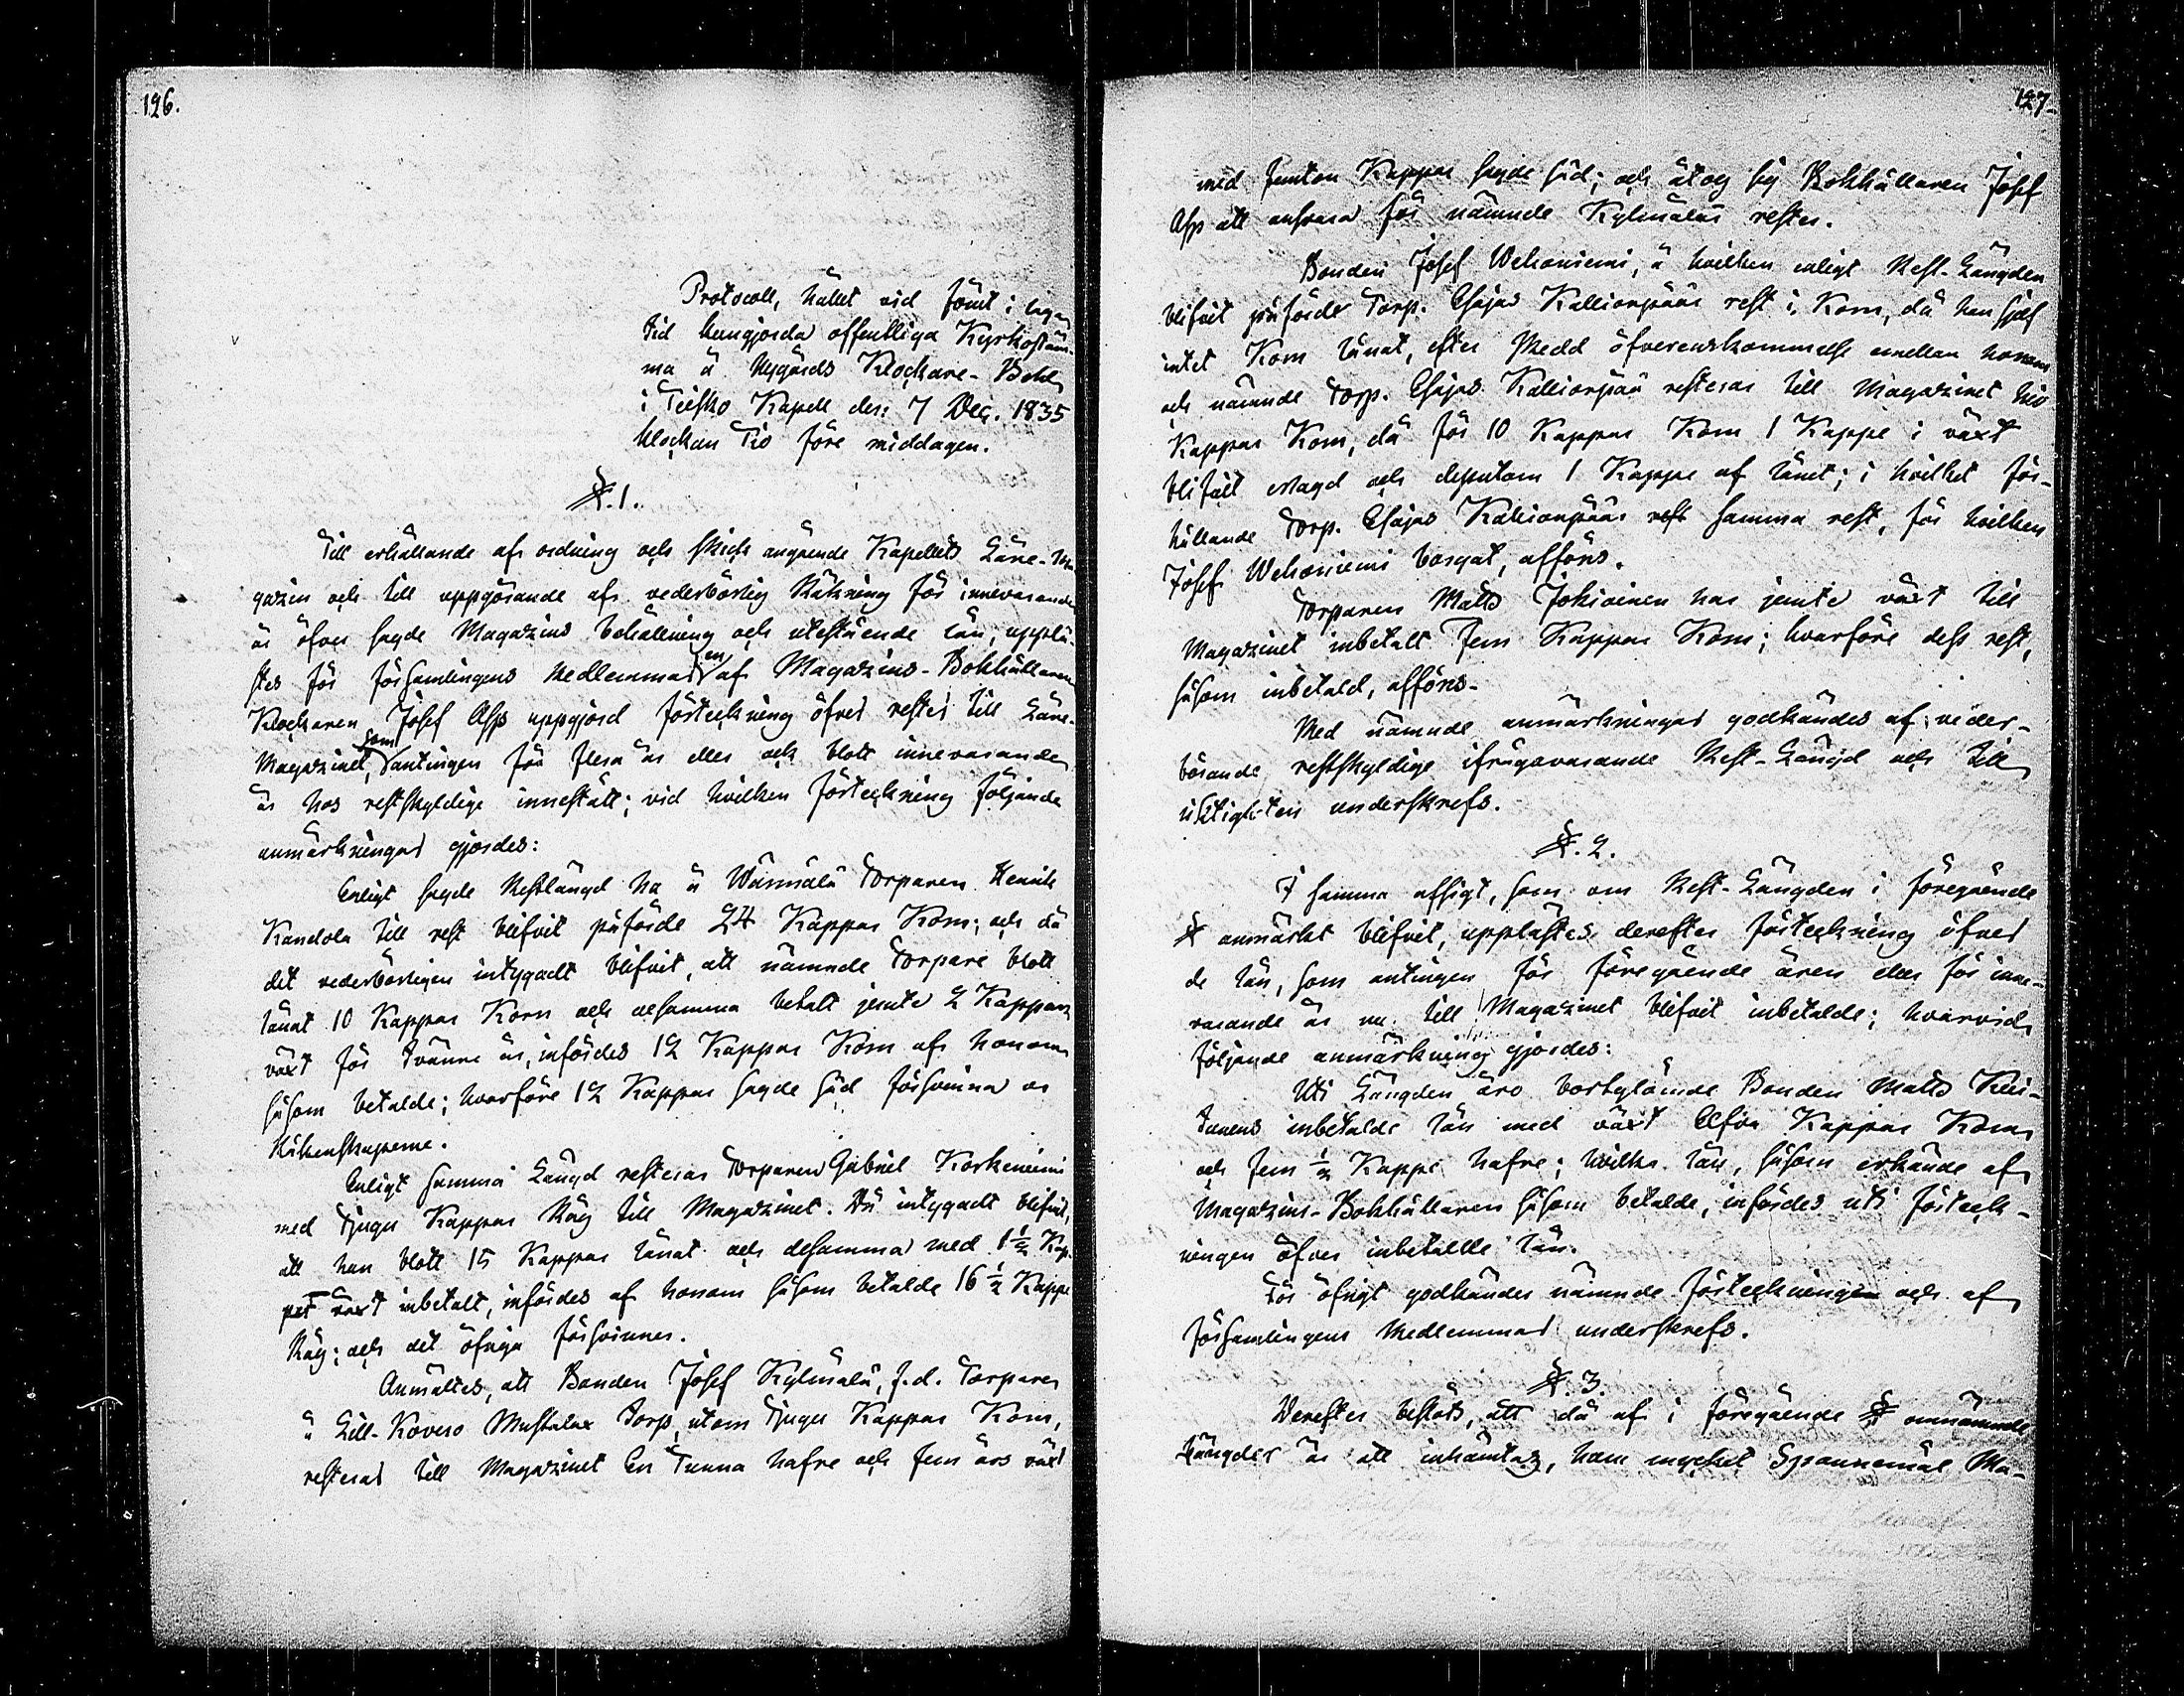 126.
Protocoll, hållet vid förut i laga
tid kungjorda offentliga Kyrkostäm-
ma å Nygårds Klockare-Bohl
i Teisko Kapell den 7 Dec. 1835
klockan Tio före middagen.
§.1.
Till erhållande af ordning och skick angående Kapellets Låne-Ma-
gazin och till uppgörande af vederbörlig Räkning för innevarande
år öfver sagde Magazins behållning och utestående lån, upplä-
stes för församlingens medlemmar en af Magazins-Bokhållaren
Klockaren Josef Asp uppgjord förteckning öfver rester till Låne-
Magazinet, som antingen för flera år eller och blott innevarande
år hos restskyldige innestått; vid hvilken förteckning följande
anmärkningar gjordes:
Enligt sagde Restlängd ha å Wännälä Torparen Henrik
Kandola till rest blifvit påförde 24 Kappar Korn; och då
det vederbörligen intygadt blifvit, att nämnde Torpare blott
lånat 10 Kappar Korn och desamma betalt jemte 2 Kappars
växt för tvänne år, infördes 12 Kappar Korn af honom
såsom betalde; hvarföre 12 Kappar sagde säd försvinna ur
Räkenskaperne.
Enligt samma Längd resterar Torparen Gabriel Korkeniemi
med Tjugu Kappar Råg till Magazinet. Då intygadt blifvit,
att han blott 15 Kappar lånat och desamma med 1½ Kap-
pes växt inbetalt, infördes af honom såsom betalde 16½ Kappe
Råg; och det öfriga försvinner.
Anmältes, att Bonden Josef Kylmälä, f.d. Torpare
å Lill-Kovero Mustalax Torp, utom Tjugu Kappar Korn,
resterar till Magazinet En Tunna hafre och Fem års växt
127.
med Femton Kappar sagde säd; och åtog sig Bokhållaren Josef
Asp att ansvara för nämnde Kylmäläs rester.
Bonden Josef Wehoniemi, å hvilken enligt Rest-Längden
blifvit påförde Torp. Esajas Kallionpääs rest i Korn, då han sjelf
intet Korn lånat, efter Medd öfverenskommelse emellan honom
och nämnde Torp. Esajas Kallionpää resterar till Magazinet Tio
Kappar Korn, då för 10 Kappar Korn 1 Kappe i växt
blifvit erlagd och dessutom 1 Kappe af lånet; i hvilket för-
hållande Torp. Esajas Kallionpääs rest samma rest, för hvilken
Josef Wehoniemi borgat, afförs.
Torparen Matts Jokioinen har jemte växt till
Magazinet inbetalt Fem Kappar Korn; hvarföre dess rest,
såsom inbetald, afförs.
Med nämnde anmärkningar godkändes af veder-
börande restskyldige ifrågavarande Rest-Längd och till
riktigheten underskrefs.
§.2.
I samma afsigt, som om Rest-Längden i föregående
§ anmärkt blifvit, upplästes derefter förteckning öfver
de lån, som antingen för föregående åren eller för inne-
varande år nu till Magazinet blifvit inbetalde; hvarvid
följande anmärkning gjordes:
Uti Längden äro bortglömde Bonden Matts
inbetalde lån med växt Elfva Kappar Korn
och Fem ½ Kappe hafre; hvilka lån, såsom erkände af
Magazins-Bokhållaren såsom betalde, infördes uti förteck-
ningen öfver inbetallte lån.
För öfrigt godkändes nämnde förteckningen och af
församlingens medlemmar underskrefs.
§.3.
Derefter beslöts, att då af i föregående § omnämnde
Längder är att inhämtas, huru mycket Spannemål Ma-